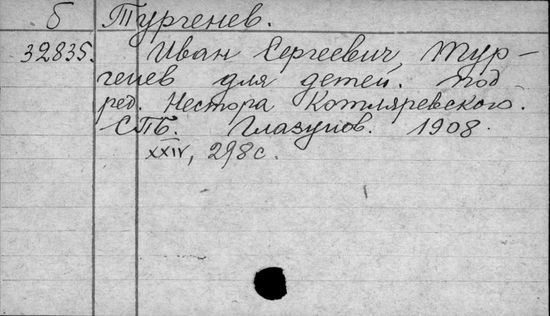 б Тургенев.
32835. Иван Сергеевич Тур-
генев для детей. Под
ред. Нестора Котляревского.
СПБ. Глазунов. 1908.
XXIV, 298 с.